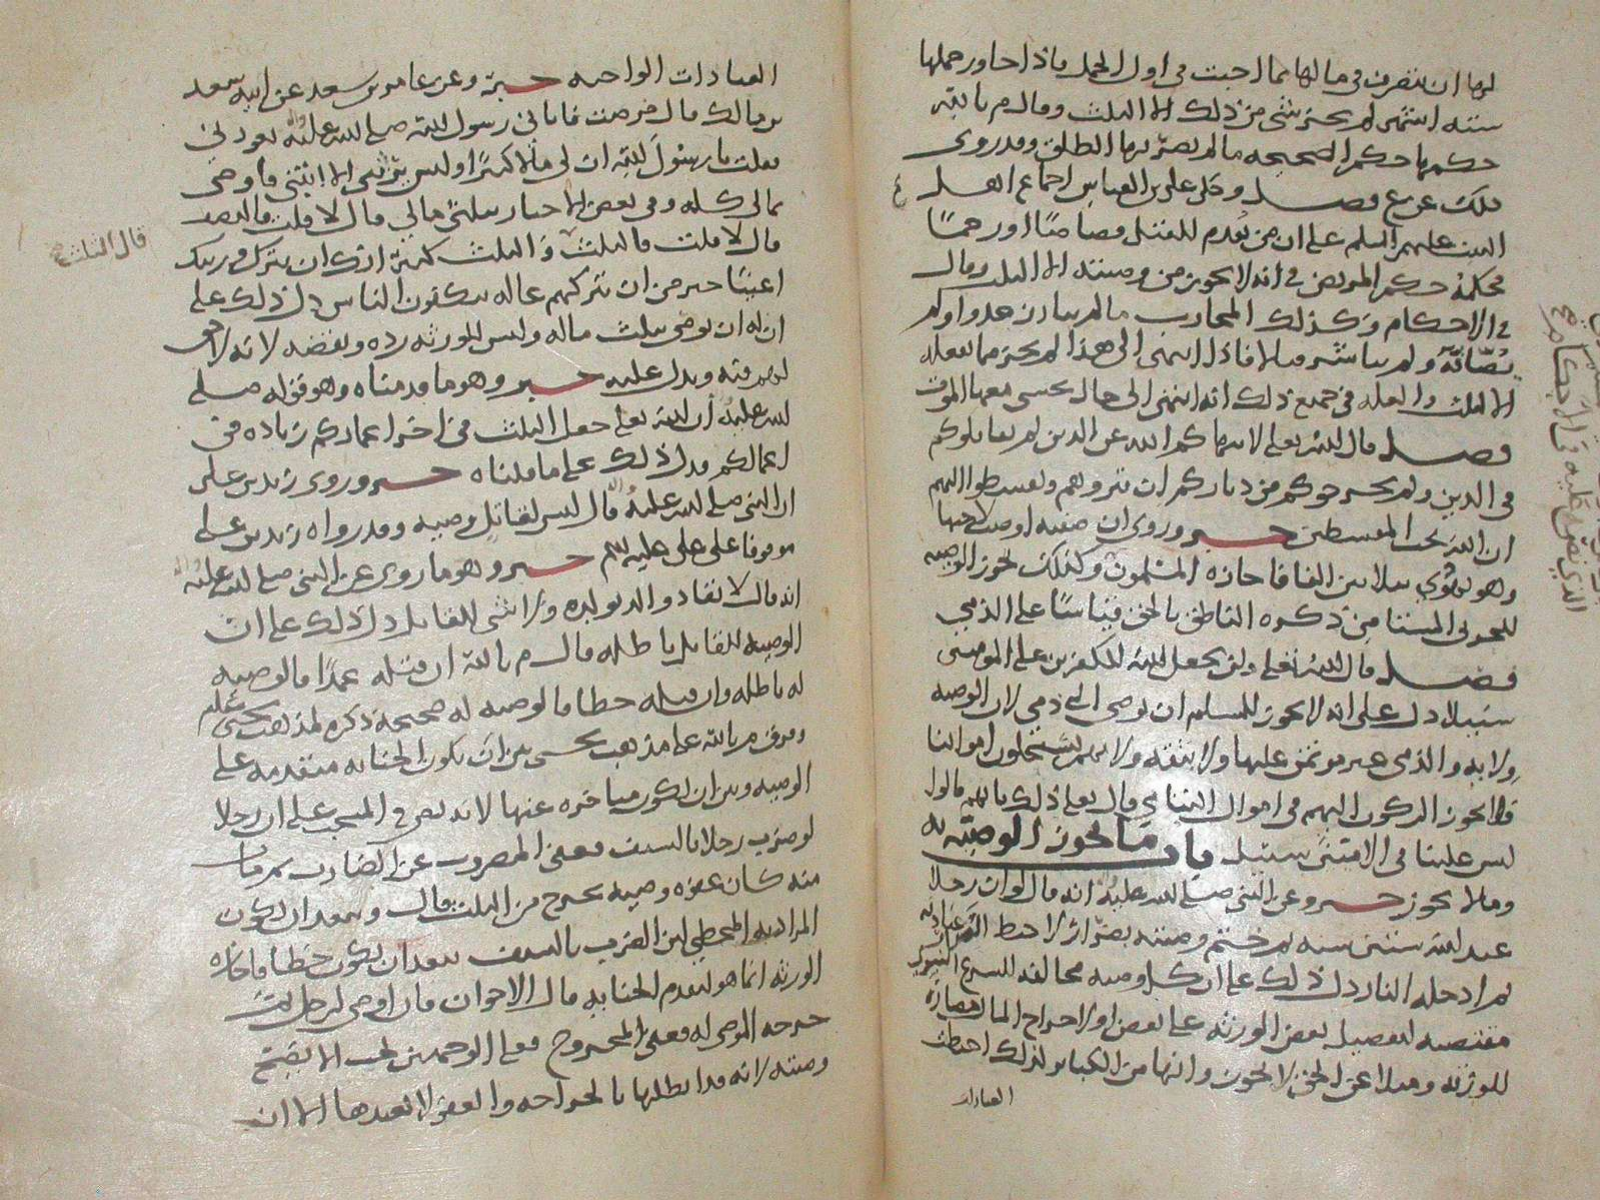 لها ان تتصرف في مالها بما احبت في اول الحمل فاذا جاوز حملها
ستة اشهر لم يجز شي من ذلك الا الثلث وقال م بالله
حكمها حكم الصحيحة ما لم يضربها الطلق وقد روى
ذلك عن ع فصل وحكى علي بن العباس اجماع اهل
البيت عليهم السلم على ان من يقدم للقتل قصاصا او رجما
فحكمه حكم المريض في انه لا يجوز من وصيته الا الثلث وقال
في الاحكام وكذلك المحارب ما لم يبارز عدوا ولم
يصافه ولم يباشر قتالا فاذا انتهى الى هذا لم يجز مما يفعله
الا الثلث والعلة في جميع ذلك انه انتهى الى حال يخشى معها الموت
فصل قال الله تعالى لا ينهاكم الله عن الذين لم يقاتلوكم
في الدين ولم يخرجوكم من دياركم ان تبروهم وتقسطوا اليهم
ان الله يحب المقسطين خبر وروي ان صفية اوصت لاخيها
وهو يهودي بثلاثين الفا فاجازه المسلمون وكذلك تجوز الوصية
للحربي المستامن ذكره الناطق بالحق قياسا على الذمي
فصل قال الله تعالى ولن يجعل الله للكافرين على المومنين
سبيلا دل على انه لا يجوز للمسلم ان يوصي الى ذمي لان الوصية
ولاية والذمي غير موتمن عليها ولا ثقة ولانهم يستحلون اموالنا
فلا يجوز الركون اليهم في اموال اليتامى قال تعالى ذلك بانهم قالوا
ليس علينا في الاميين سبيل باب ما تجوز الوصية به
وما لا يجوز خبر وعن النبي صلى الله عليه انه قال لو ان رجلا
عبد الله ستين سنة ثم ختم وصيته بضرار لاحبط الضرار عبادته
ثم ادخله النار دل ذلك على ان كل وصية مخالفة للشرع الشريف
مقتضية لتفضيل بعض الورثة على بعض او لاخراج المال مضارة
للورثة وميلا عن الحق لا تجوز وانها من الكبائر ولذلك احبطت
العبادات
العبادات الواجبة خبر وعن عامر بن سعد عن ابيه سعد
بن مالك قال مرضت فاتاني رسول الله صلى الله عليه واله يعودني
فقلت يا رسول الله ان لي مالا كثيرا وليس يرثني الا ابنتي فاوصي
بمالي كله وفي بعض الاخبار بثلثي مالي قال لا قلت فالنصف
قال لا قلت فالثلث قال الثلث والثلث كثير انك ان تترك ورثتك
اغنيا خير من ان تتركهم عالة يتكففون الناس دل ذلك على
ان له ان يوصي بثلث ماله وليس للورثة رده ونقضه لانه لا حق
لهم فيه ويدل عليه خبر وهو ما قدمناه وهو قوله صلى
الله عليه ان الله تعالى جعل الثلث في اخر اعماركم زيادة في
اعمالكم فدل ذلك على ما قلناه خبر وروى زيد بن علي
ان النبي صلى الله عليه واله قال ليس لقاتل وصية وقد رواه زيد بن علي
موقوفا على علي عليه السلم خبر وهو ما روي عن النبي صلى الله عليه واله
انه قال لا يقاد والد بولده ولا شي للقاتل دل ذلك على ان
الوصية للقاتل باطلة قال م بالله ان قتله عمدا فالوصية
له باطلة وان قتله خطا فالوصية له صحيحة ذكره لمذهب يحيى عليلم
وفرق م بالله على مذهب يحيى بين ان تكون الجناية متقدمة على
الوصية وبين ان تكون متاخرة عنها لانه نص في المنتخب على ان رجلا
لو ضرب رجلا بالسيف فعفى المضروب عن الضارب ثم مات
منه كان عفوه وصية تخرج من الثلث قال
المراد به المخطي لان الضرب بالسيف يبعد ان يكون خطا فاجازه
الورثة انما هو لتقدم الجناية قال الاخوان فان اوصى لرجل ثم
جرحه الموصى له فعلى المجروح فعلى الوجهين يجب الا تصح
وصيته لانه قد ابطلها بالجراحة والعفو لا يعيدها الا ان
قال الثلث صح